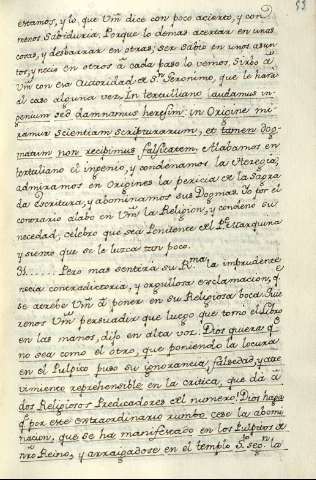 53
estamos, y lo que Vm dice con poco acierto, y con
menos Sabiduria. Porque lo demas acertar en unas
cosas, y desbarrar en otras; ser sabio en unos asun
tos, y necio en otros à cada paso lo vemos. Sirbo â
Vm con esa Autoridad de Sn Geronimo, que le hara
al caso alguna vez. In tertuliano laudamus in-
genium sed damnamus heresim: in Origine mi-
ramur scientiam scripturarum, et tamen dog-
matum non recipimus falsitatem. Alabamos en
tertuliano el ingenio, y condenamos la Heregia;
admiramos en Origines la pericia de la Sagra
da escritura, y abominamos sus Dogmas. Yo por el
contrario alabo en Vm la Religion, y condeno su
necedad; celebro que sea Penitente del Pe Marquina
y siento que se le luzca tan poco.
31 Pero mas sentirá su Rma la imprudente
necia contradictoria, y orgullosa exclamacion, q
se atrebe Vm à poner en su Religiosa boca. Quie
renos Vm persuadir que luego que tomó el Libro
en las manos, dijo en alta voz: Dios quiera q
no sea como el otro, que poniendo la locura
en el Pulpito puso su ignorancia, falsedad, y atre
vimiento reprehensible en la critica, que da â
dos Religiosos Predicadores del numero! Dios haga
q por este extraordinario rumbo cese la abomi
nacion, que se ha manifestado en los Pulpitos de
nro Reino, y arraigadose en el templo Sto segn la